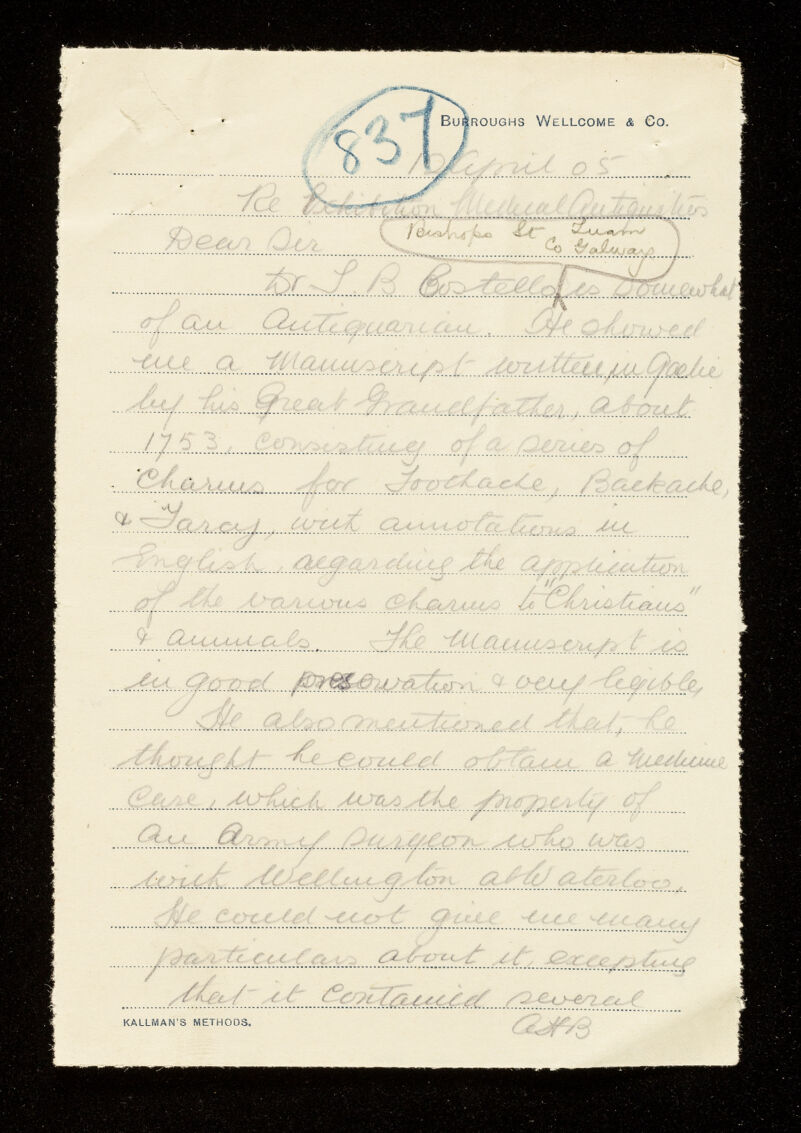 837
BURROUGHS WELLCOME & CO.
12 April 05
Re Exhibition Medical Antiquities
Dear Sir
Bishops St Tuam
Co Galway
Dr T. B Costello is somewhat
of an Antiquarian. He showed
me a Manuscript written in Gaelic
by his Great Grandfather, about
1753, consisting of a series of
Charms for Toothache, Backache,
& Farcy, with annotations in
English, regarding the application
of the various charms to "Christians"
& animals. The Manuscript is
in good preservation & very legible,
He also mentioned that, he
thought he could obtain a Medicine
Case, which was the property of
an Army Surgeon who was
with Wellington at Waterloo.
He could not give me many
particulars about it, excepting
that it contained several
KALLMAN'S METHODS.